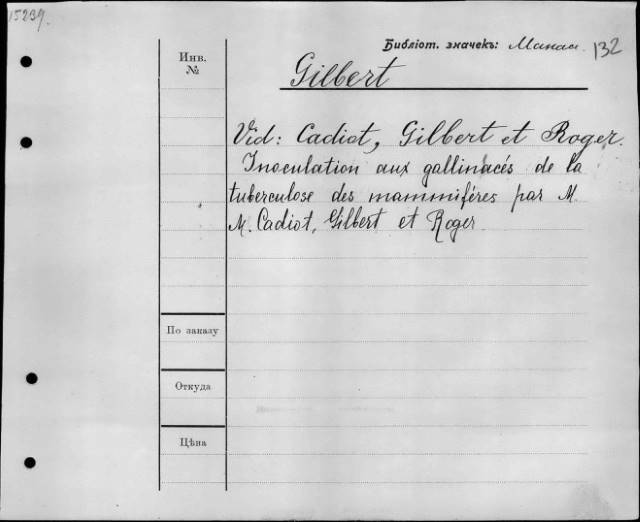 15239.
Библіот. значекъ: 132
Инв.
№
Gilbert
Vid: Cadiot, Gilbert et Roger.
Inoculation aux gallinacés de la
tuberculose des mammiféres par M.
M. Cadiot, Gilbert et Roger
По заказу
Откуда
Цѣна